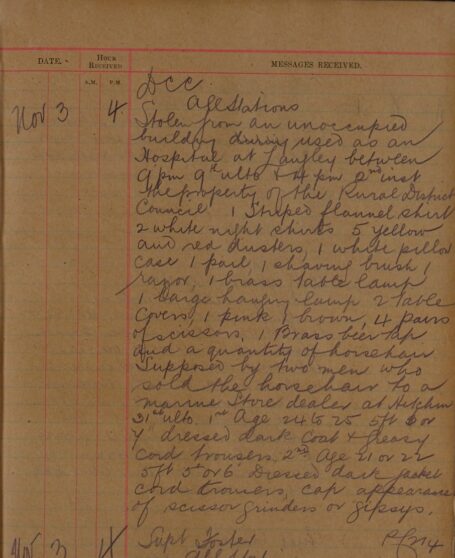 DATE. HOUR RECEIVED MESSAGES RECEIVED.
A.M. P.M.
DCC
All Stations
Nov 3 4 Stolen from an unoccupied
building during used as an
Hospital at Langley between
9 pm 9th ulto & 4 pm 2nd inst
the property of the Rural District
Council 1 Striped flannel shirt
2 white night shirts 5 yellow
and red dusters, 1 white pillow
case 1 pail 1 shaving brush 1
razor, 1 brass table lamp
1 large hanging lamp 2 table
Covers, 1 pink 1 brown, 4 pairs
of scissors, 1 Brass beer tap
and a quantity of horsehair
Supposed by two men who
sold the horsehair to a
marine Store dealer at Hitchin
31st ulto. 1st Age 24 to 25 5ft 6 or
7" dressed dark Coat & greasy
Cord trousers. 2nd Age 21 or 22
5ft 5" or 6" Dressed dark jacket
cord trousers, cap appearance
of scissor grinders or gipsys.
Nov 3 4 Supt Foster
All Stations